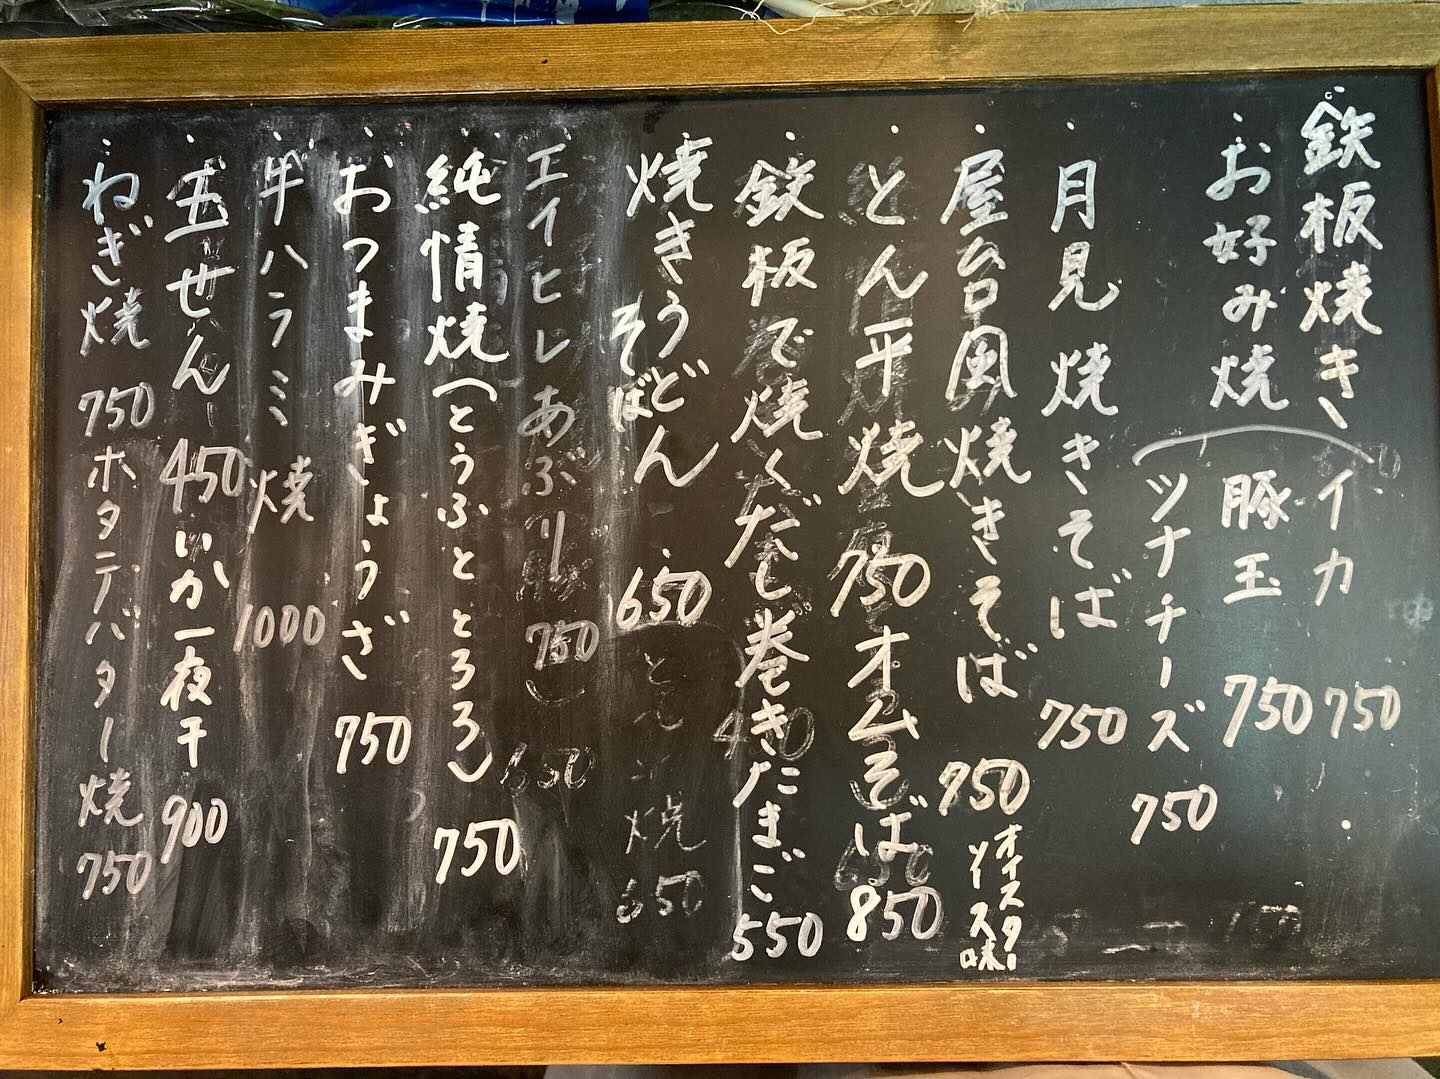 ・鉄板焼き、イカ 750
・お好み焼 豚玉 750
ツナチーズ 750
・月見焼きそば 750
・屋台風焼きそば 750 オイスターソース味
・とん平焼 750 オムそば 850
・鉄板で焼くだし巻きたまご 550
・焼きうどん 650
そば
焼 650
・エイヒレあぶり 750
650
・純情焼(とうふととろろ) 750
・おつまみぎょうざ 750
・牛ハラミ焼 1000
・玉せん 450 いか一夜干 900
・ねぎ焼 750 ホタテバター焼 750